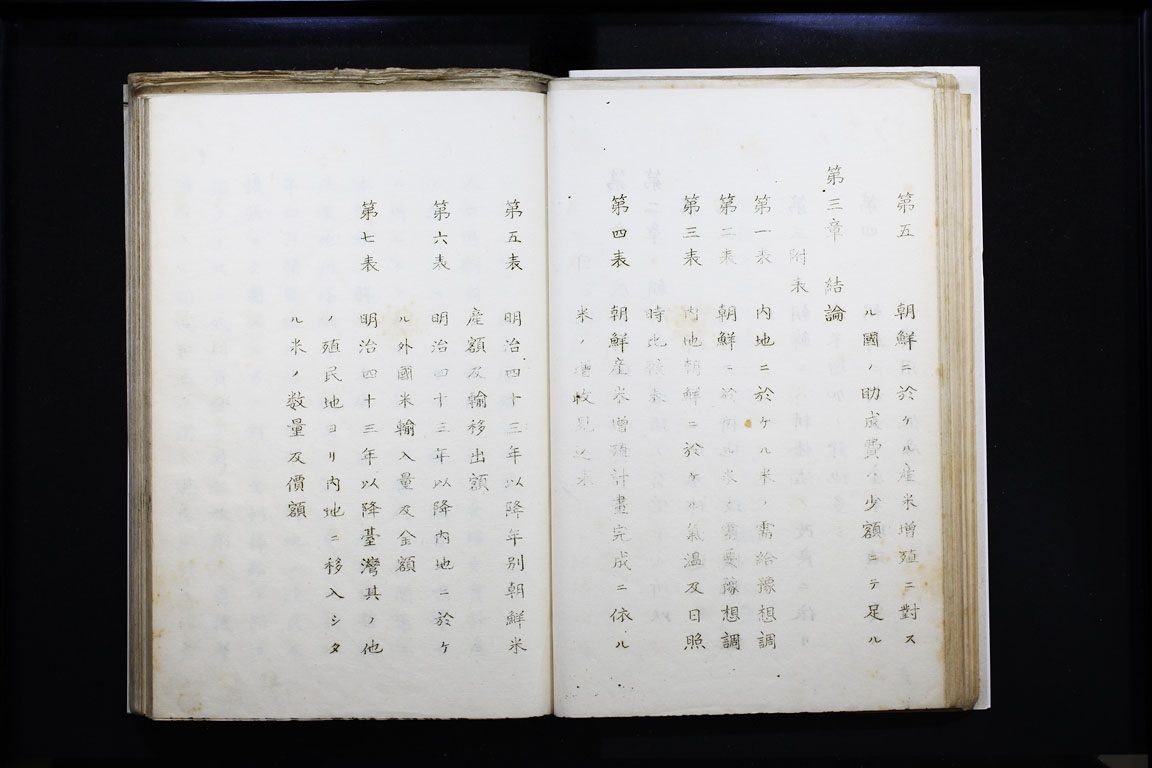 第五 朝鮮ニ於ケル産米增殖ニ對ス
ル國ノ助成費ハ少額ニテ足ル
第三章 結論
附表
第一表 内地ニ於ケル米ノ需給豫想調
第二表 朝鮮ニ於ケル米ノ需要豫想調
第三表 内地朝鮮ニ於ケル氣溫及日照
時比較表
第四表 朝鮮産米增殖計畫完成ニ依ル
米ノ增收見込表
第五表 明治四十三年以降年別朝鮮米
産額及輸移出額
第六表 明治四十三年以降内地ニ於ケ
ル外國米輸入量及金額
第七表 明治四十三年以降臺灣其ノ他
ノ殖民地ヨリ内地ニ移入シタ
ル米ノ数量及價額